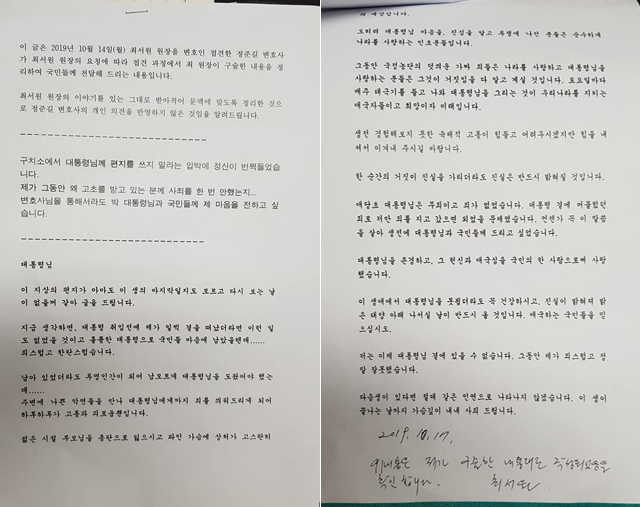 이 글은 2019년 10월 14일(월) 최서원 원장을 변호인 접견한 정준길 변호사
가 최서원 원장의 요청에 따라 접견 과정에서 최 원장이 구술한 내용을 정
리하여 국민들께 전달해 드리는 내용입니다.
최서원 원장의 이야기를 있는 그대로 받아적어 문맥에 맞도록 정리한 것으
로 정준길 변호사의 개인 의견을 반영하지 않은 것임을 알려드립니다.
구치소에서 대통령님께 편지를 쓰지 말라는 입박에 정신이 번쩍들었습
니다.
제가 그동안 왜 고초를 받고 있는 분께 사죄를 한 번 안했는지...
변호사님을 통해서라도 박 대통령님과 국민들께 제 마음을 전하고 싶
습니다.
대통령님
이 지상의 편지가 아마도 이 생의 마지막일지도 모르고 다시 보는 날
이 없을꺼 같아 글을 드립니다.
지금 생각하면, 대통령 취임전에 제가 일찍 곁을 떠났더라면 이런 일
도 없었을 것이고 훌륭한 대통령으로 국민들 마음에 남았을텐데......
죄스럽고 한탄스럽습니다.
남아 있었더라도 투명인간이 되어 남모르게 대통령님을 도왔어야 했는
데......
주변에 나쁜 악연들을 만나 대통령님에게까지 죄를 씌워드리게 되어
하루하루가 고통과 괴로움뿐입니다.
젊은 시절 부모님을 흉탄으로 잃으시고 파인 가슴에 상처가 고스란히
의 세상입니다.
오히려 대통령님 마음을, 진실을 알고 투쟁에 나선 분들은 순수하게
나라를 사랑하는 민초분들입니다.
그동안 국정농단의 덧씌운 가짜 죄들은 나라를 사랑하고 대통령님을
사랑하는 분들은 그것이 거짓임을 다 알고 계실 것입니다. 토요일마다
매주 태극기를 들고 나와 대통령님을 그리는 것이 우리나라를 지키는
애국자들이고 희망이자 미래입니다.
생전 경험해보지 못한 육체적 고통이 힘들고 어려우시겠지만 힘을 내
셔서 이겨내 주시길 바랍니다.
한 순간의 거짓이 진실을 가리더라도 진실은 반드시 밝혀질 것입니다.
애당초 대통령님은 무죄이고 죄가 없었습니다. 대통령 곁에 머물렀던
죄로 저만 죄를 지고 갔으면 되었을 문제였습니다. 언젠가 꼭 이 말씀
을 살아 생전에 대통령님과 국민들께 드리고 싶었습니다.
대통령님을 존경하고, 그 헌신과 애국심을 국민의 한 사람으로써 사랑
했습니다.
이 생애에서 대통령님을 못뵙더라도 꼭 건강하시고, 진실이 밝혀져 밝
은 태양 아래 나서실 날이 반드시 올 것입니다. 애국하는 국민들을 믿
으십시오.
저는 이제 대통령님 곁에 있을 수 없습니다. 그동안 제가 죄스럽고 정
말 잘못했습니다.
다음생이 있다면 절대 같은 인연으로 나타나지 않겠습니다. 이 생이
끝나는 날까지 가슴깊이 내내 사죄 드립니다.
2019. 10. 17.
위 내용은 제가 구술한 내용대로 작성되었음을
확인합니다. 최서원